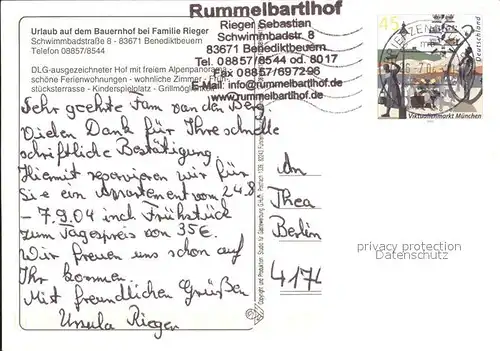 Rummelbartlhof
Rieger Sebastian
Schwimmbadstr. 8
83671 Benediktbeuern
Tel. 08857/8544 od. 8017
Fax 08857/697296
E-Mail: info@rummelbartlhof.de
www.rummelbartlhof.de
Urlaub auf dem Bauernhof bei Familie Rieger
Schwimmbadstraße 8 - 83671 Benediktbeuern
Telefon 08857/8544
DLG-ausgezeichneter Hof mit freiem Alpenpanorama
schöne Ferienwohnungen - wohnliche Zimmer - Früh-
stücksterrasse - Kinderspielplatz - Grillmöglichkeit
Sehr geehrte Fam van den Berg
Vielen Dank für Ihre schnelle
schriftliche Bestätigung
Hiermit reservieren wir für
Sie ein Appartement vom 24.8
- 7.9.04 incl Frühstück
zum Tagespreis von 35€.
Wir freuen uns schon auf
Ihr kommen
Mit freundlichen Grüßen
Ursula Rieger
An
Thea
Berlin
4174
45
Deutschland
Viktualienmarkt München
privacy protection
Datenschutz